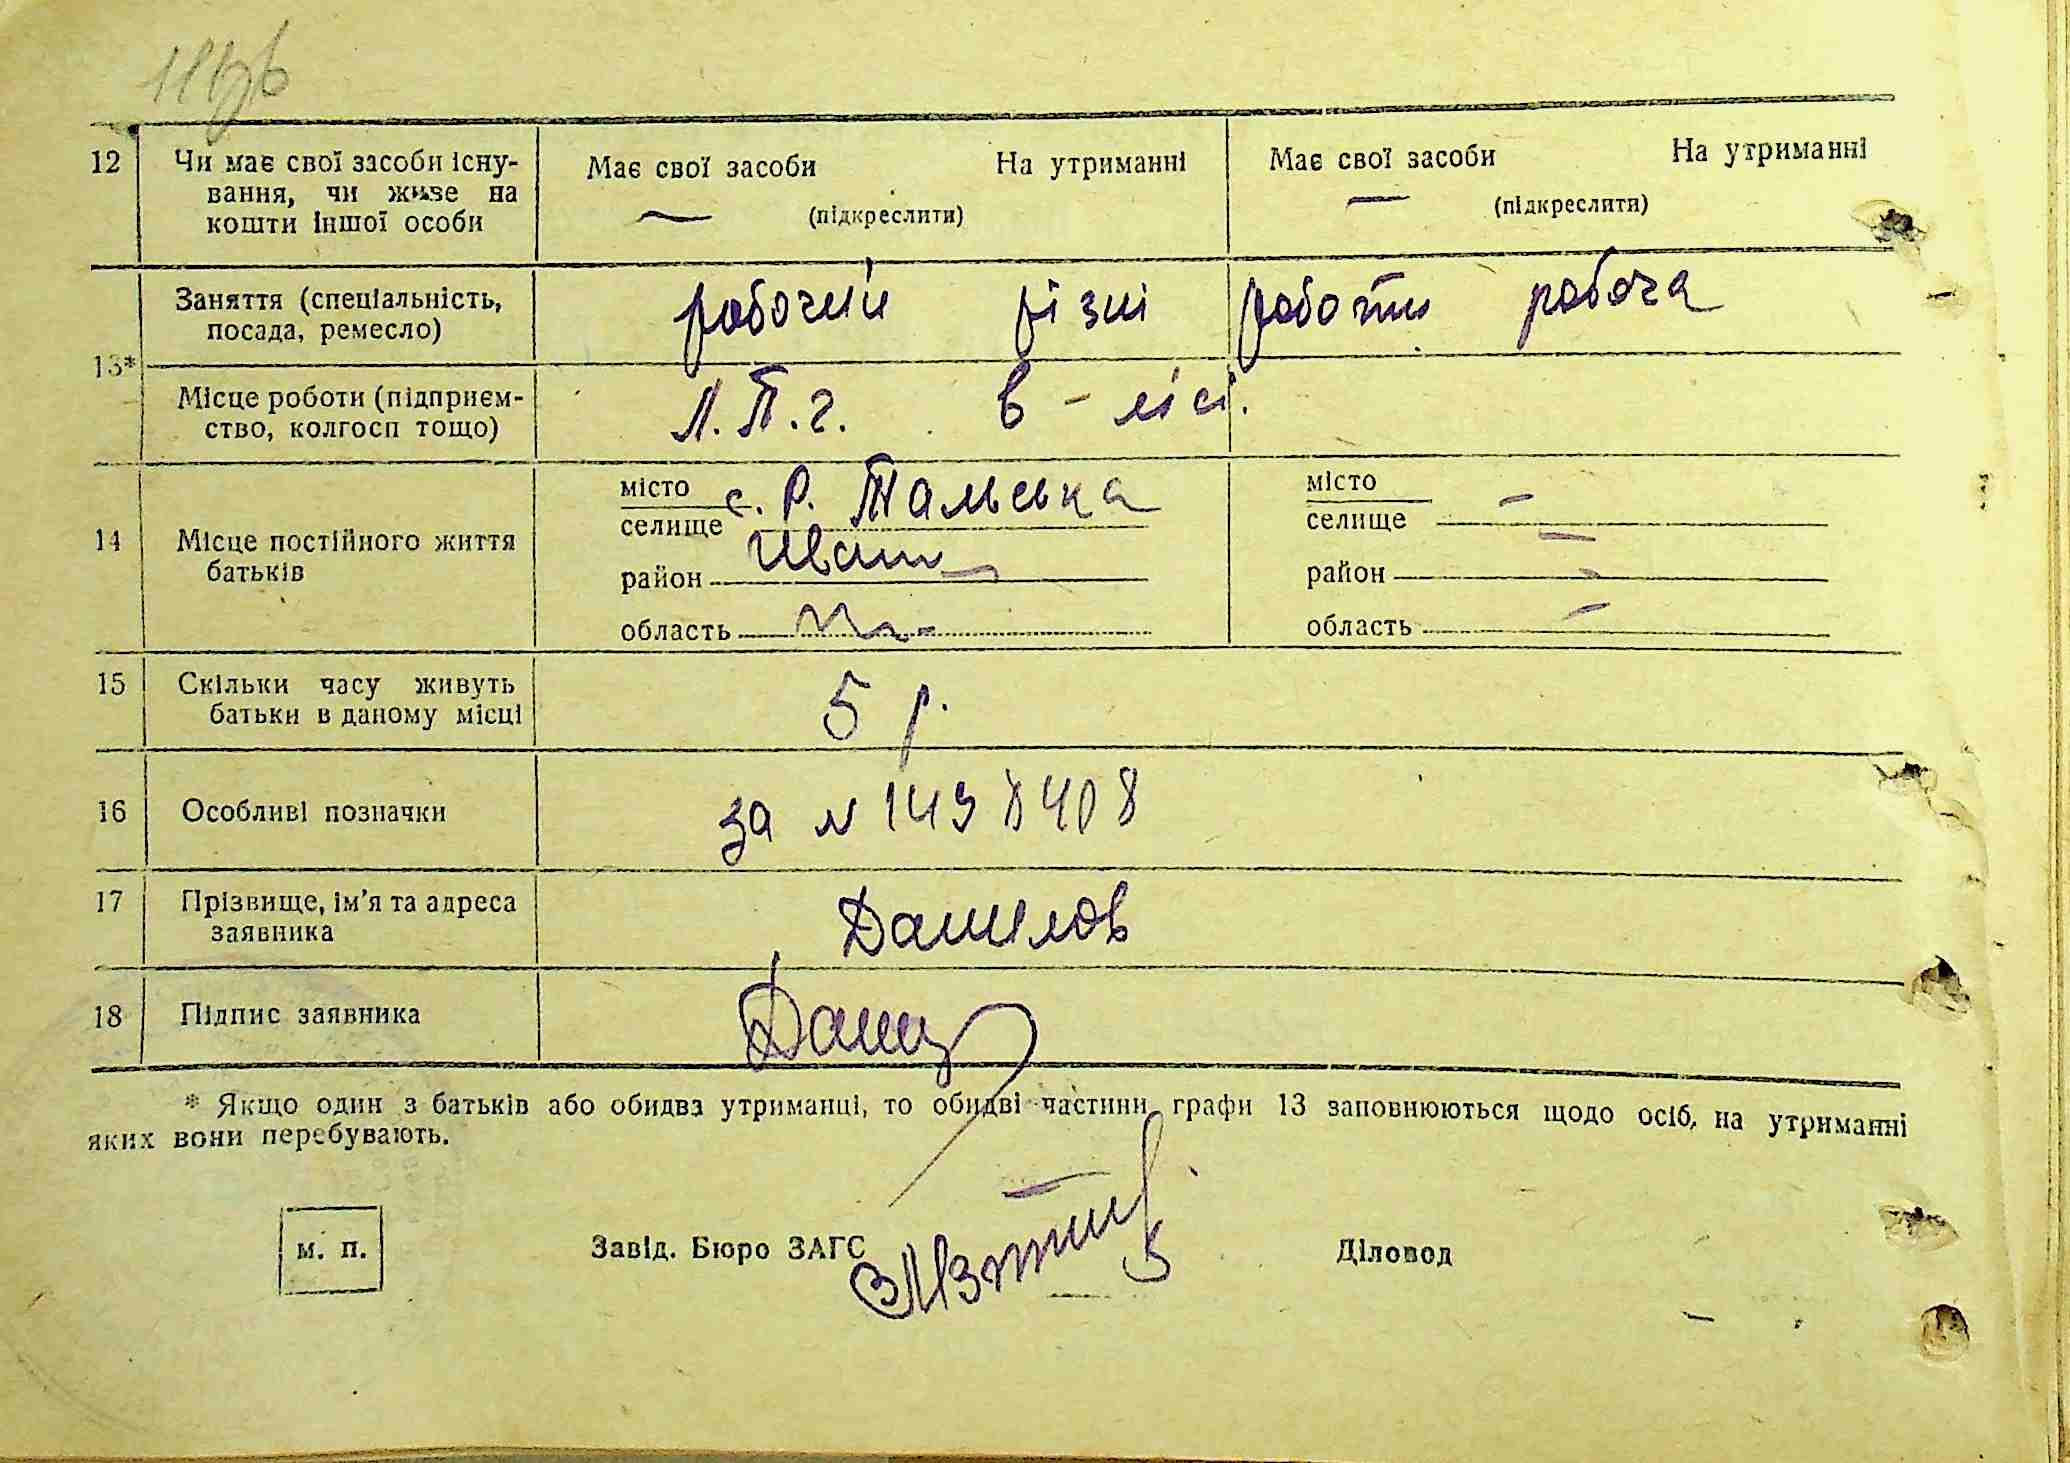 12 Чи має свої засоби існу- Має свої засоби На утриманні Має свої засоби На утриманні
вання, чи живе на — (підкреслити) — (підкреслити)
кошти іншої особи
Заняття (спеціальність, робочий різні роботи робоча
посада, ремесло)
13*
Місце роботи (підприєм- Л.П.г. в - лісі.
ство, колгосп тощо)
14 Місце постійного життя батьків
місто с. Р. Тальська місто —
селище селище —
район Іван район —
область область —
15 Скільки часу живуть 5 р.
батьки в даному місці
16 Особливі позначки за N 1438408
17 Прізвище, ім'я та адреса Данилов
заявника
18 Підпис заявника
* Якщо один з батьків або обидва утриманці, то обидві частини графи 13 заповнюються щодо осіб, на утриманні
яких вони перебувають.
м. п. Завід. Бюро ЗАГС Діловод